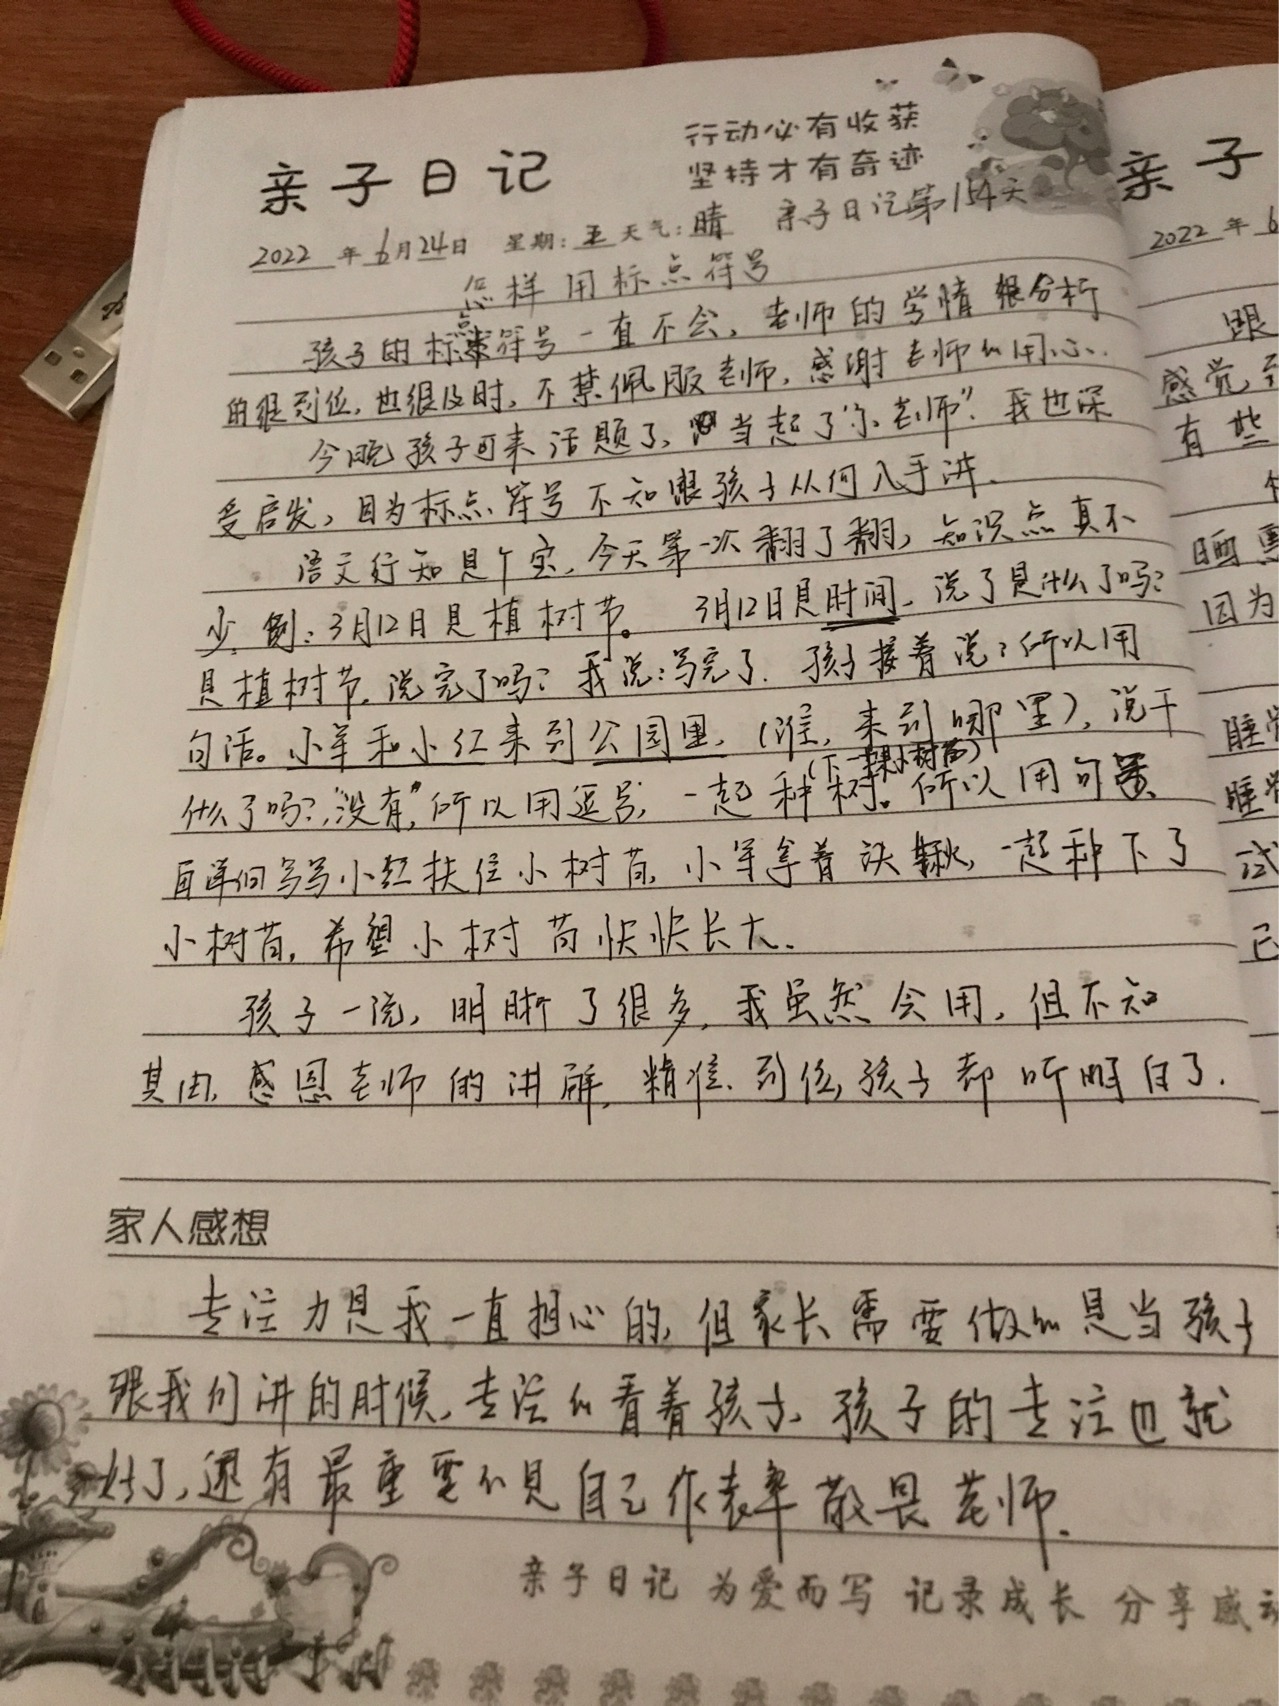 行动必有收获
坚持才有奇迹
亲子日记
亲子日记第154天
2022年6月24日 星期:五 天气:晴
怎样用标点符号
孩子的标点符号一直不会,老师的学情很分析
的很到位,也很及时,不禁佩服老师,感谢老师的用心.
今晚孩子可来话题了,当起了"小老师".我也深
受启发,因为标点符号不知跟孩子从何入手讲.
语文行知是个宝,今天第一次翻了翻,知识点真不
少.例:3月12日是植树节。 3月12日是时间,说了是什么了吗?
是植树节,说完了吗?我说:写完了.孩子接着说:所以用
句话。小军和小红来到公园里,(谁,来到哪里),说干
(下一棵小树苗)
什么了吗?"没有,"所以用逗号,一起种树。所以用句号
再详细写写小红扶住小树苗,小军拿着铁锹,一起种下了
小树苗,希望小树苗快快长大.
孩子一说,明晰了很多,我虽然会用,但不知
其由,感恩老师的讲解,精准、到位,孩子都听明白了.
家人感想
专注力是我一直担心的,但家长需要做的是当孩子
跟我们讲的时候,专注的看着孩子,孩子的专注也就
好了,还有最重要的是自己作表率敬畏老师.
亲子日记 为爱而写 记录成长 分享感动
亲子
2022年6
跟
感觉
有些
晒
因为
睡觉
睡觉
试
己